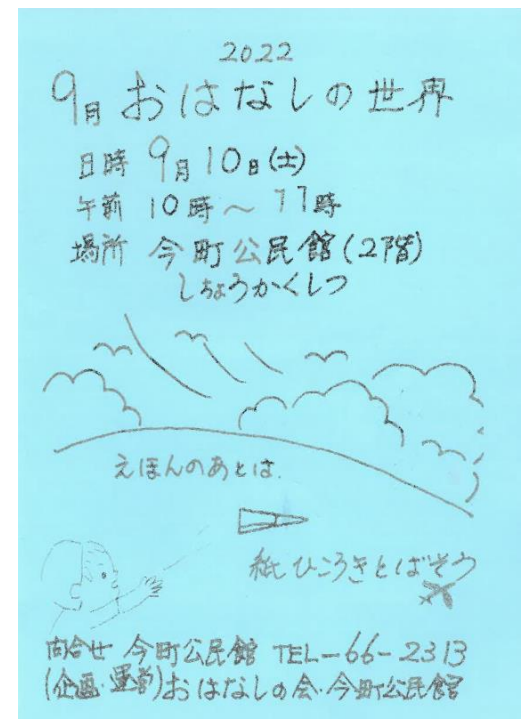 2022
9月おはなしの世界
日時 9月10日(土)
午前 10時～11時
場所 今町公民館(2階)
しちょうかくしつ
えほんのあとは.
紙ひこうきとばそう
問合せ 今町公民館 TEL-66-2313
(企画・運営)おはなしの会・今町公民館